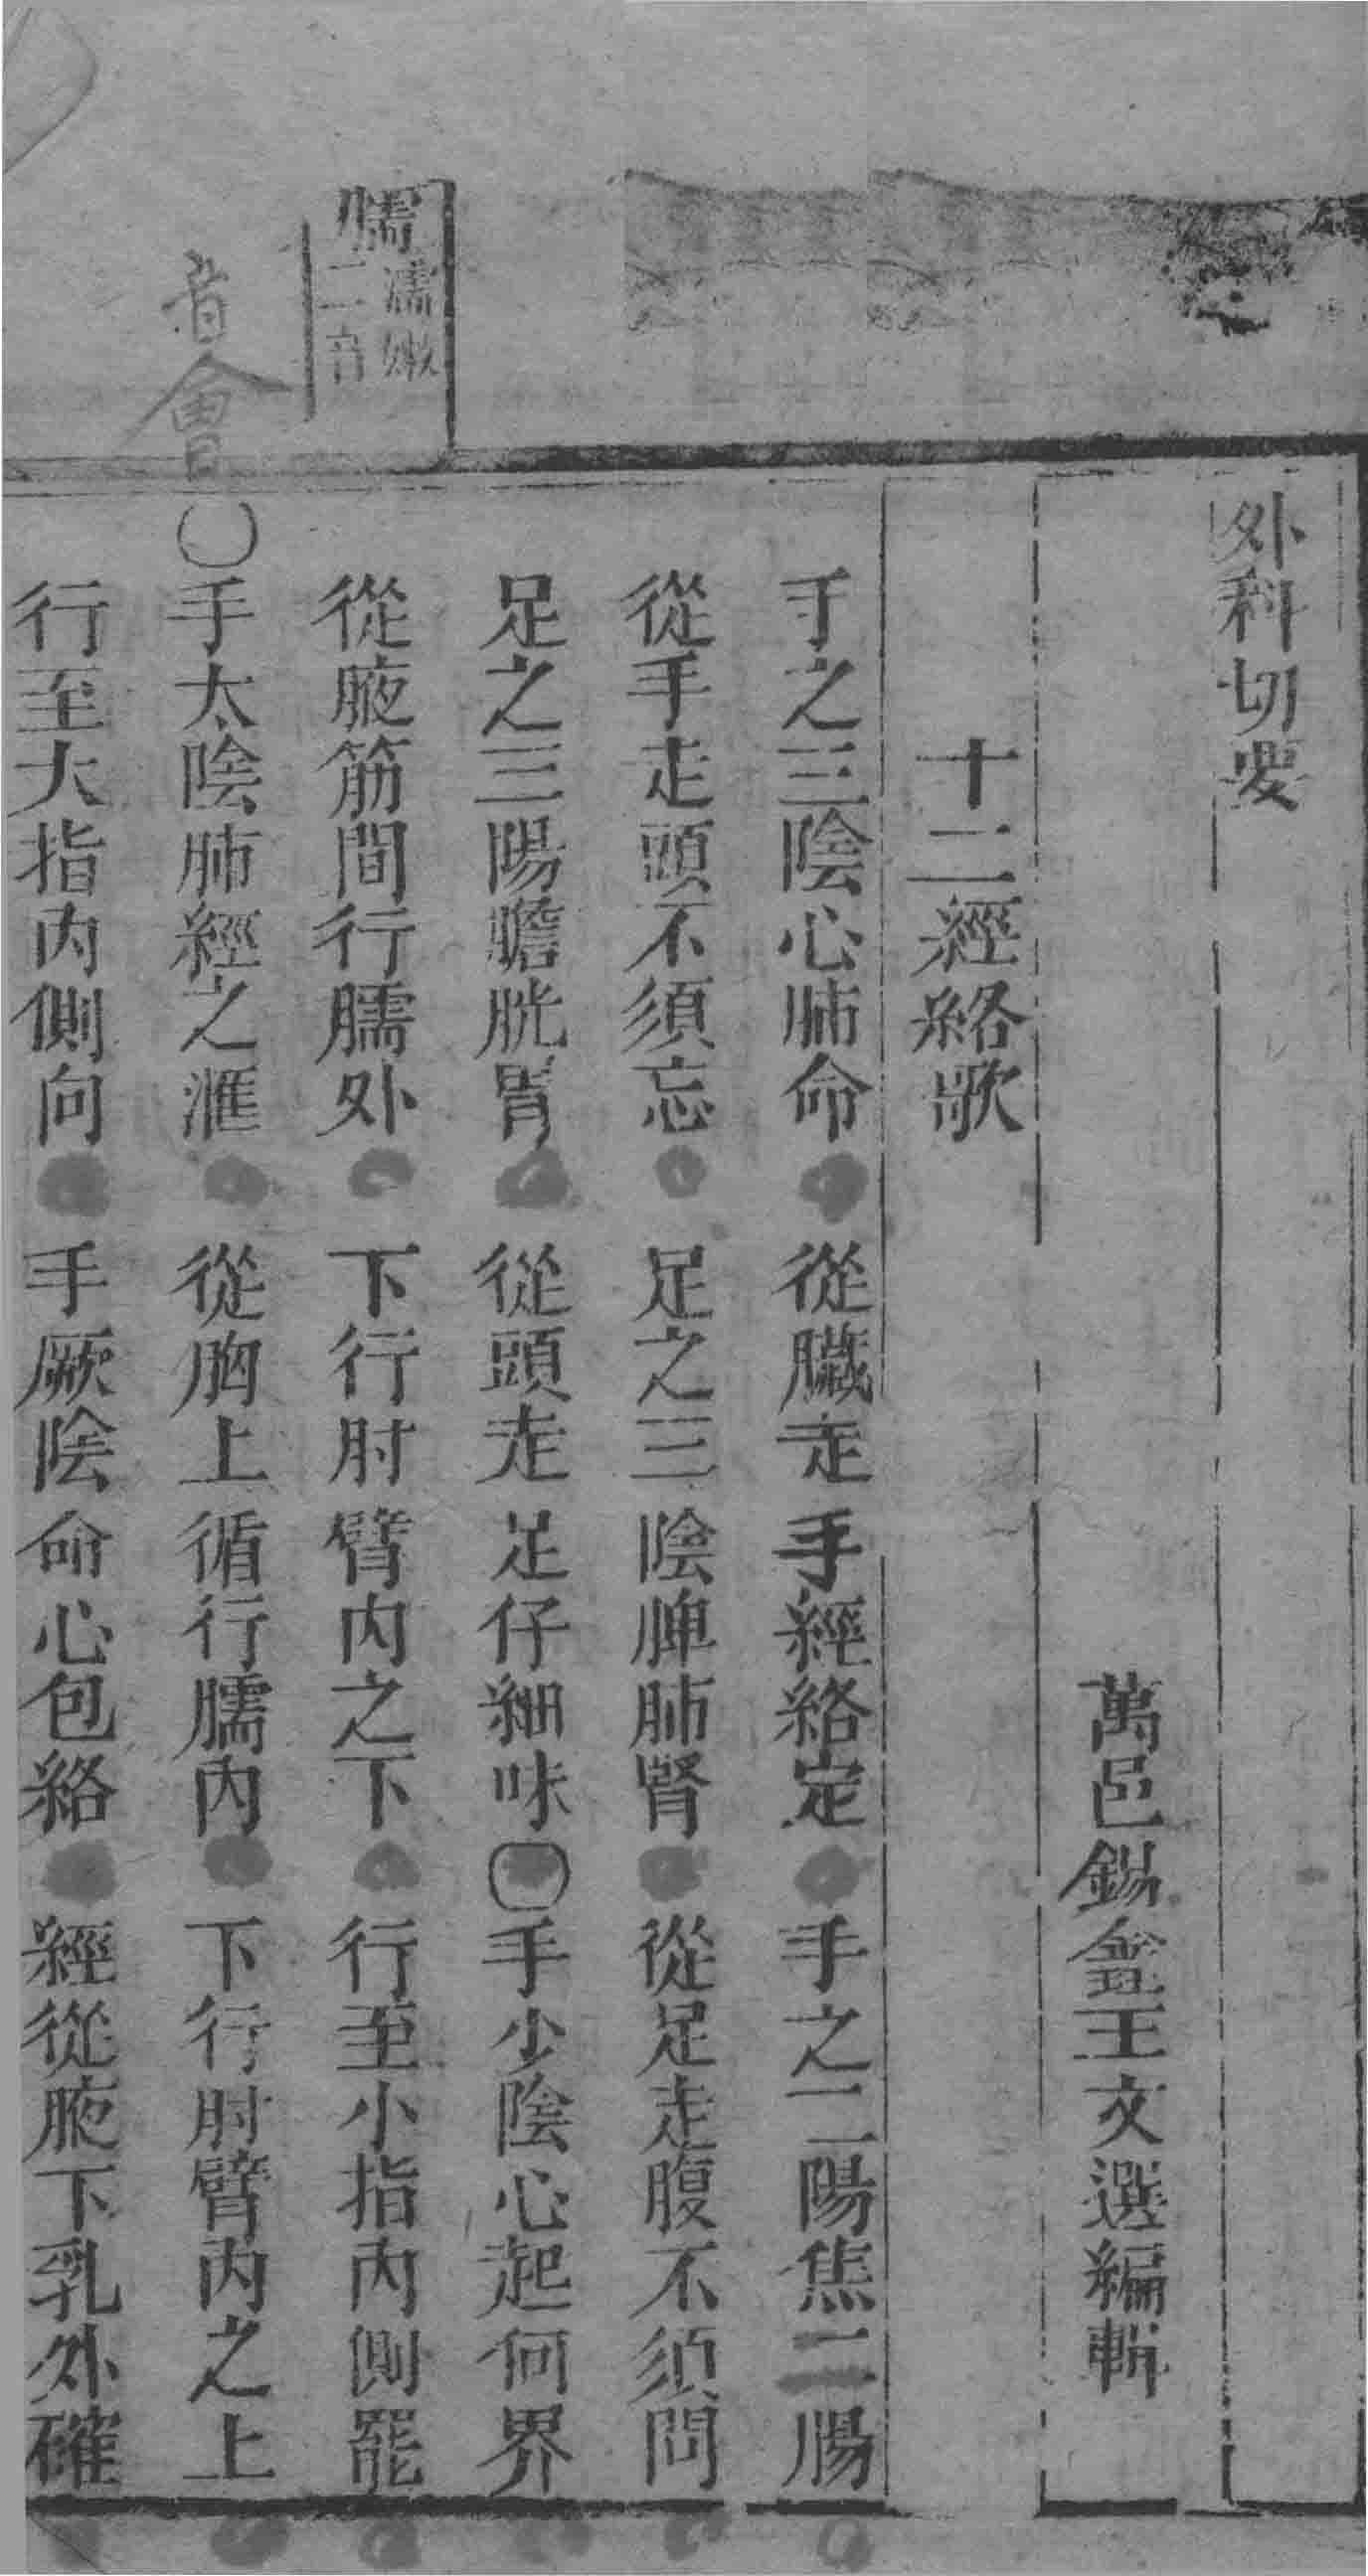 外科切要
萬邑錫鑫王文選編輯
十二經絡歌
手之三陰心肺命 從臟走手經絡定 手之二陽焦二腸
從手走頭不須忘 足之三陰脾肺腎 從足走腹不須問
足之三陽膽胱胃 從頭走足仔細味〇手少陰心起何界
從腋筋間行臑外 下行肘臂內之下 行至小指內側罷
〇手太陰肺經之滙 從胸上循行臑內 下行肘臂內之上
行至大指內側向 手厥陰命心包絡 經從腋下乳外確
臑 濡嫩二音
音會